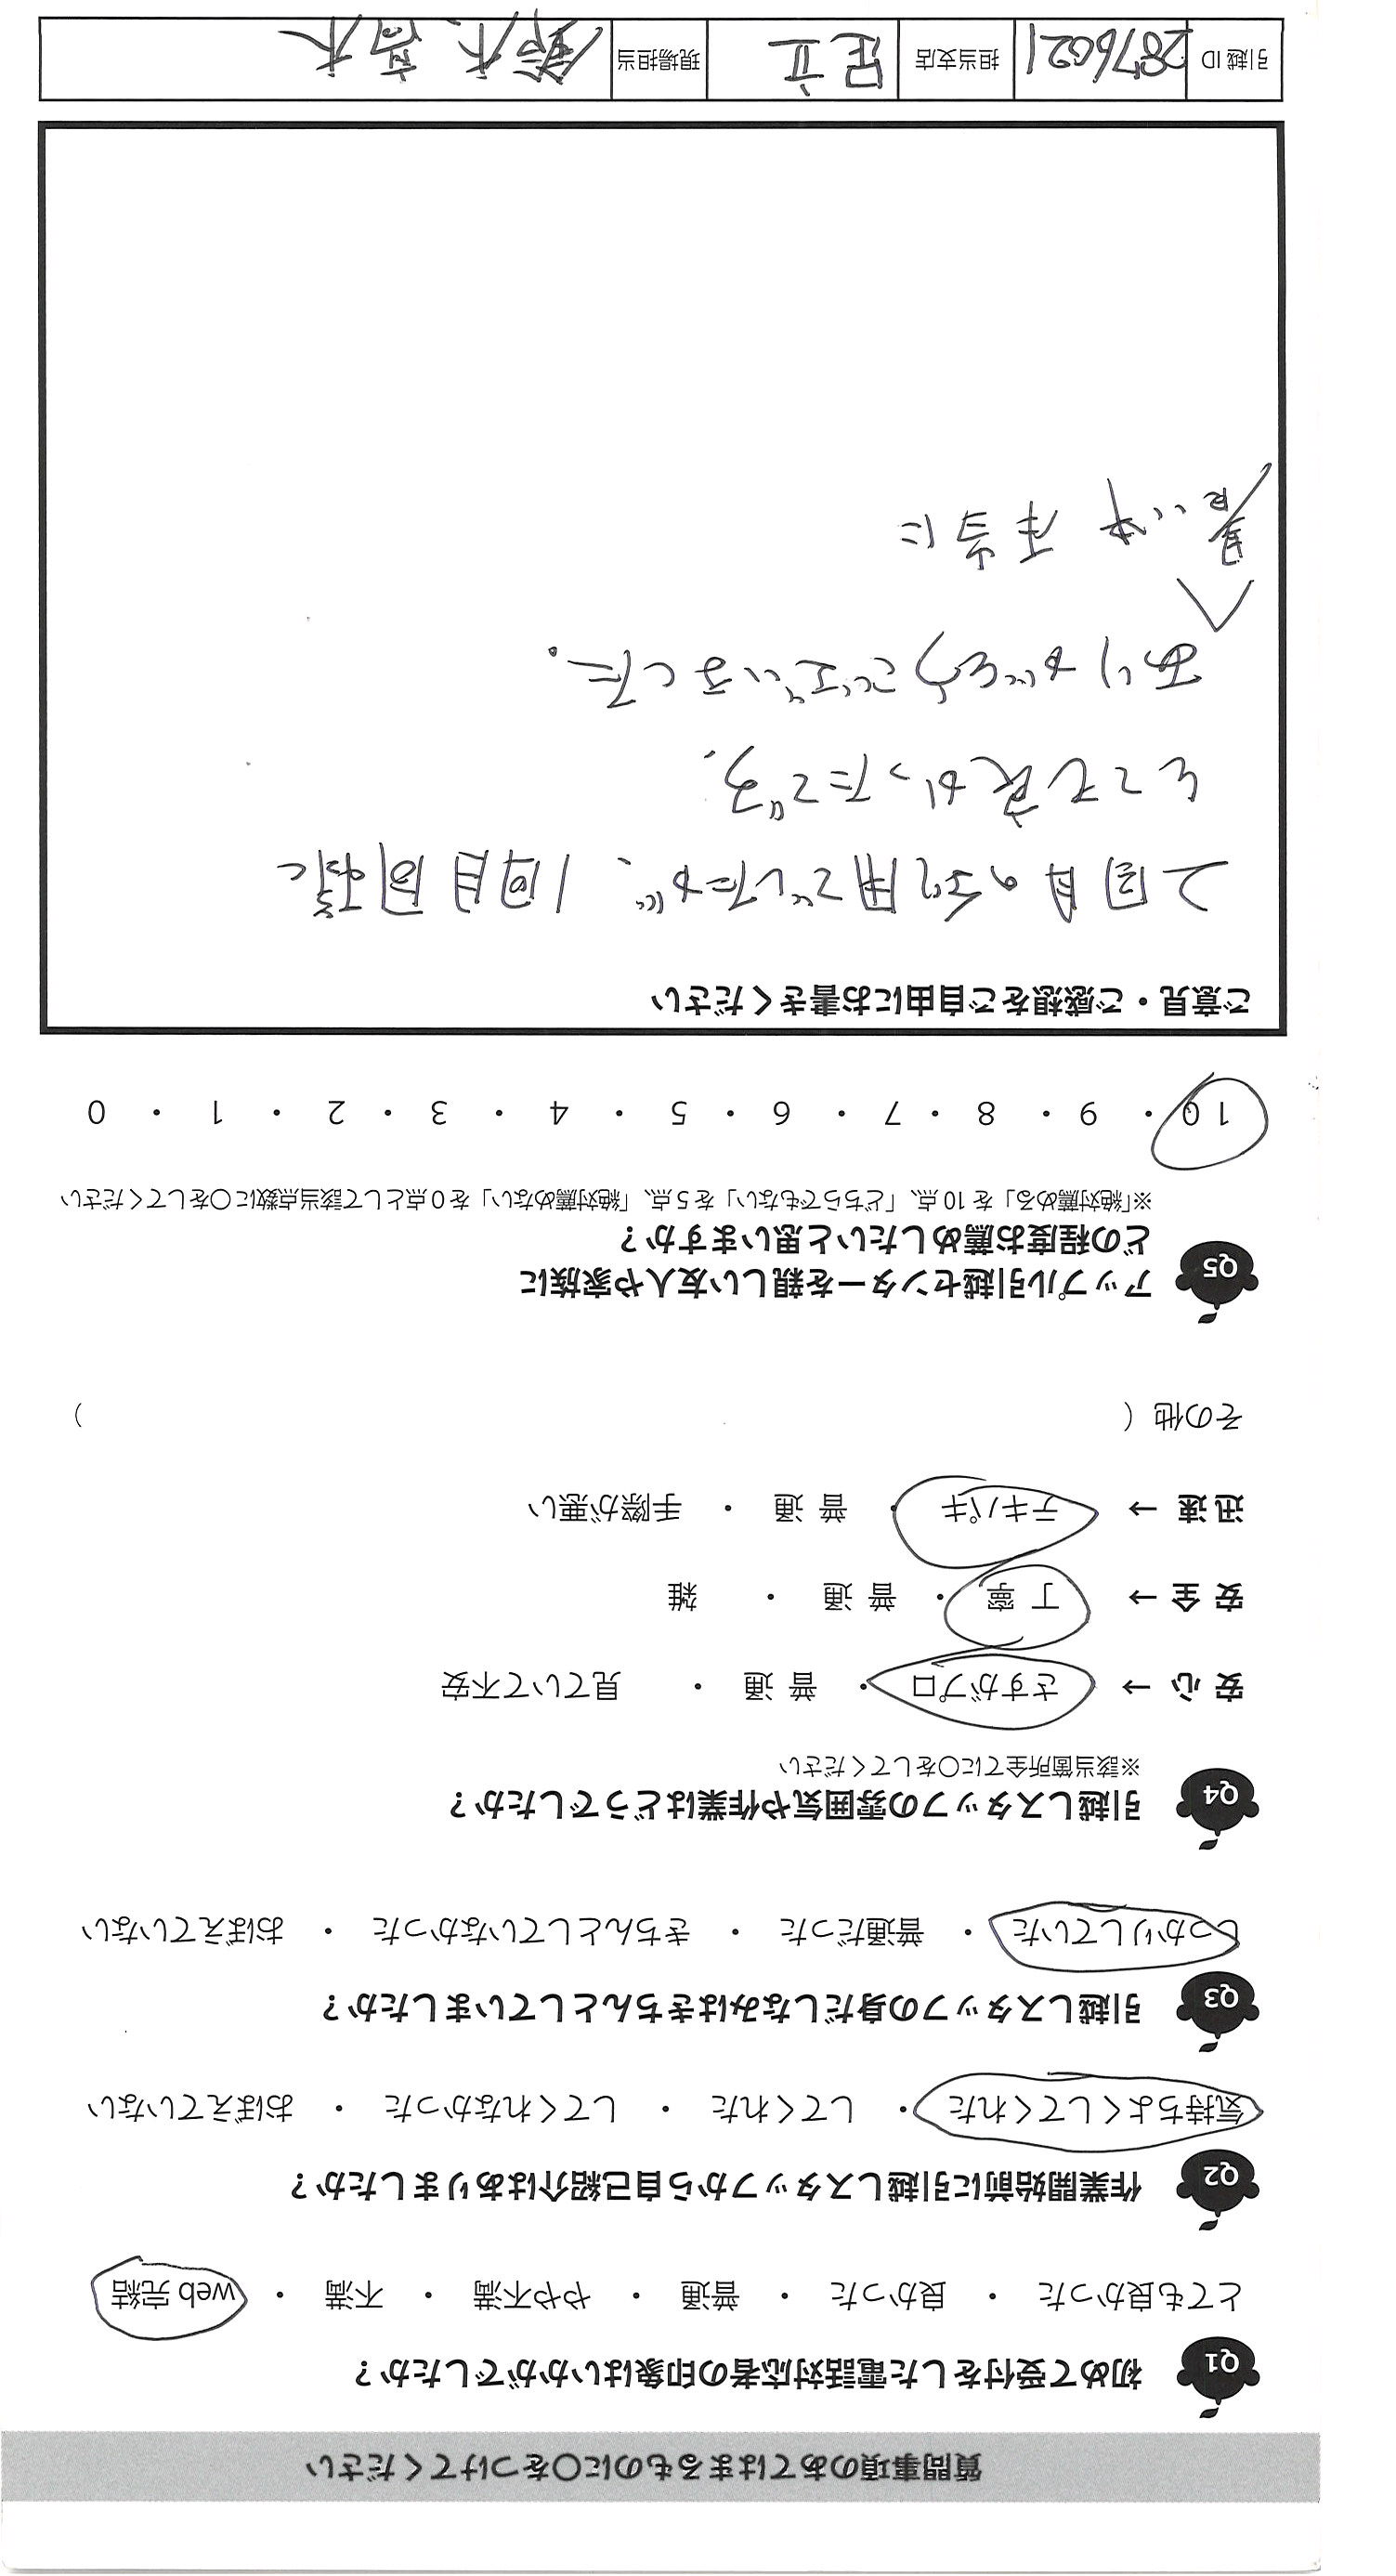 質問事項のあてはまるものに○をつけてください
Q1 初めて受付をした電話対応者の印象はいかがでしたか？
とても良かった ・ 良かった ・ 普通 ・ やや不満 ・ 不満 ・ web 完結
Q2 作業開始前に引越しスタッフから自己紹介はありましたか？
気持ちよくしてくれた ・ してくれた ・ してくれなかった ・ おぼえていない
Q3 引越しスタッフの身だしなみはきちんとしていましたか？
しっかりしていた ・ 普通だった ・ きちんとしていなかった ・ おぼえていない
Q4 引越しスタッフの雰囲気や作業はどうでしたか？
※該当箇所全てに○をしてください
安 心 → さすがプロ ・ 普 通 ・ 見ていて不安
安 全 → 丁 寧 ・ 普 通 ・ 雑
迅 速 → テキパキ ・ 普 通 ・ 手際が悪い
その他（ ）
Q5 アップル引越センターを親しい友人や家族に
どの程度お薦めしたいと思いますか？
※「絶対薦める」を 10 点、「どちらでもない」を 5 点、「絶対薦めない」を 0 点として該当点数に○をしてください
10 ・ 9 ・ 8 ・ 7 ・ 6 ・ 5 ・ 4 ・ 3 ・ 2 ・ 1 ・ 0
ご意見・ご感想をご自由にお書きください
2回目の利用でしたが、1回目同様に
とても良かったです。
ありがとうございました。
暑い中 本当に
引越 ID 2876021 担当支店 足立 現場担当 鈴木、高木